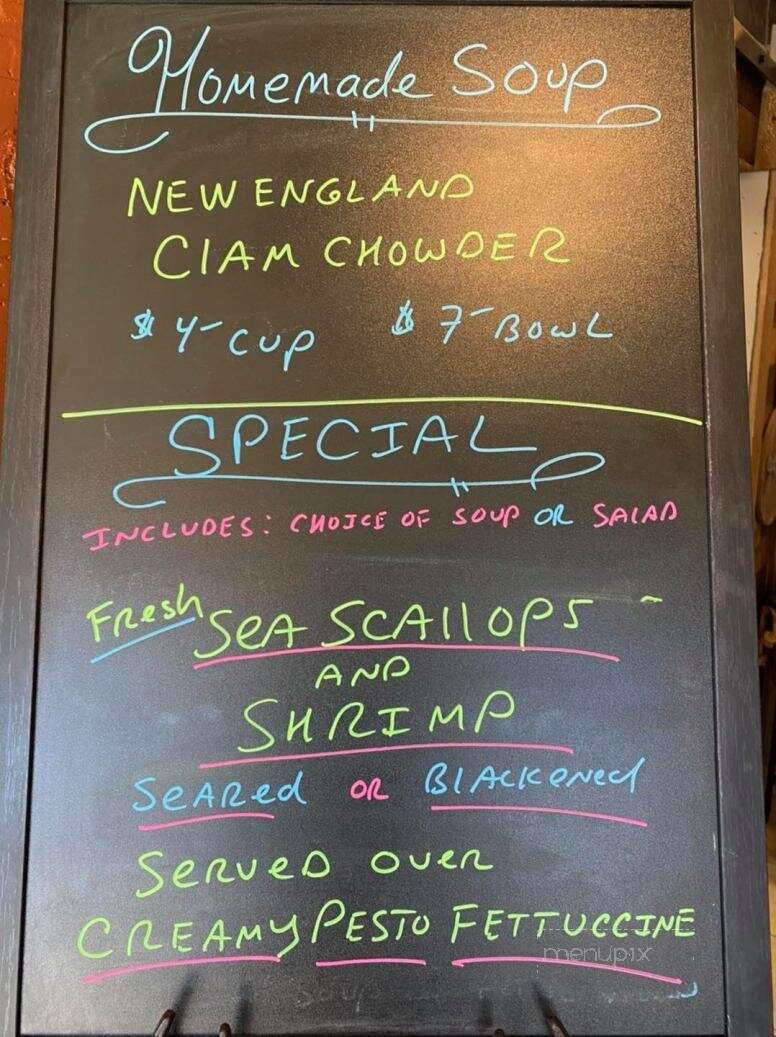 Homemade Soup
NEW ENGLAND
ClAM CHOWDER
$4- CUP $7- BOWL
SPECIAL
INCLUDES: CHOICE OF SOUP OR SALAD
FResh SeA SCAllOPS
AND
SHRIMP
SeARed OR BlAckened
SeRVeD OVeR
CREAMY PESTO FETTUCCINE
menupix
Soup